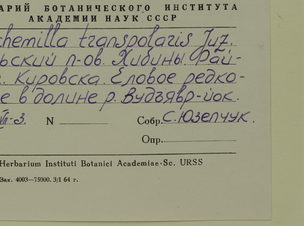 АРИЙ БОТАНИЧЕСКОГО ИНСТИТУТА
АКАДЕМИИ НАУК СССР
chemilla transpolaris Juz.
ьский п-ов. Хибины. Рай-
. Кировска. Еловое редко-
е в долине р. Вудъявр-йок.
VII-3. N Собр. С. Юзепчук.
Опр.
Herbarium Instituti Botanici Academiae-Sc. URSS
Зак. 4003—75000. 3/I 64 г.